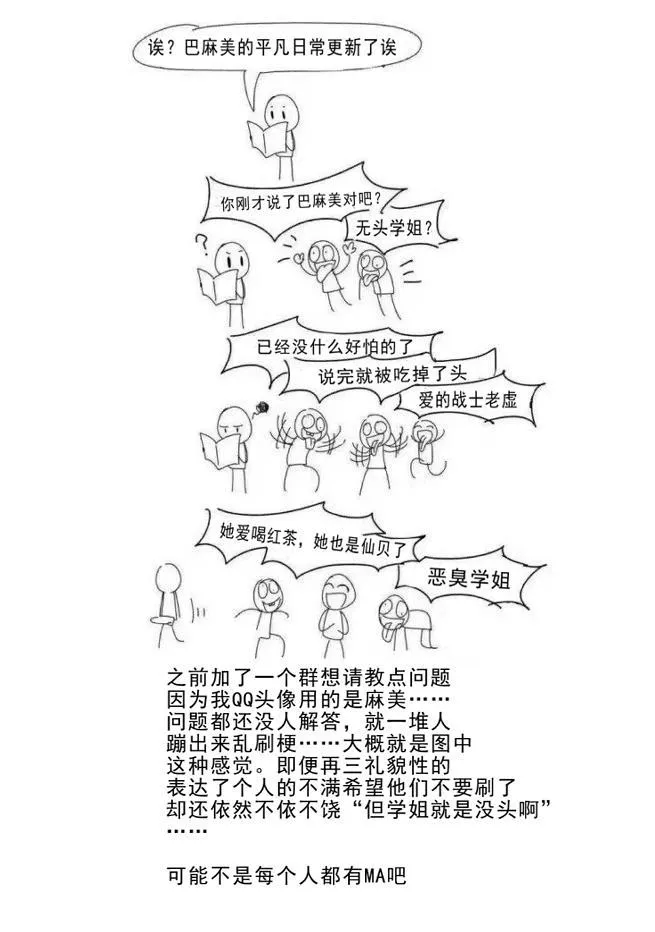 诶？巴麻美的平凡日常更新了诶
你刚才说了巴麻美对吧？
无头学姐？
?
已经没什么好怕的了
说完就被吃掉了头
爱的战士老虚
她爱喝红茶，她也是仙贝了
恶臭学姐
之前加了一个群想请教点问题
因为我QQ头像用的是麻美……
问题都还没人解答，就一堆人
蹦出来乱刷梗……大概就是图中
这种感觉。即便再三礼貌性的
表达了个人的不满希望他们不要刷了
却还依然不依不饶“但学姐就是没头啊”
……
可能不是每个人都有MA吧